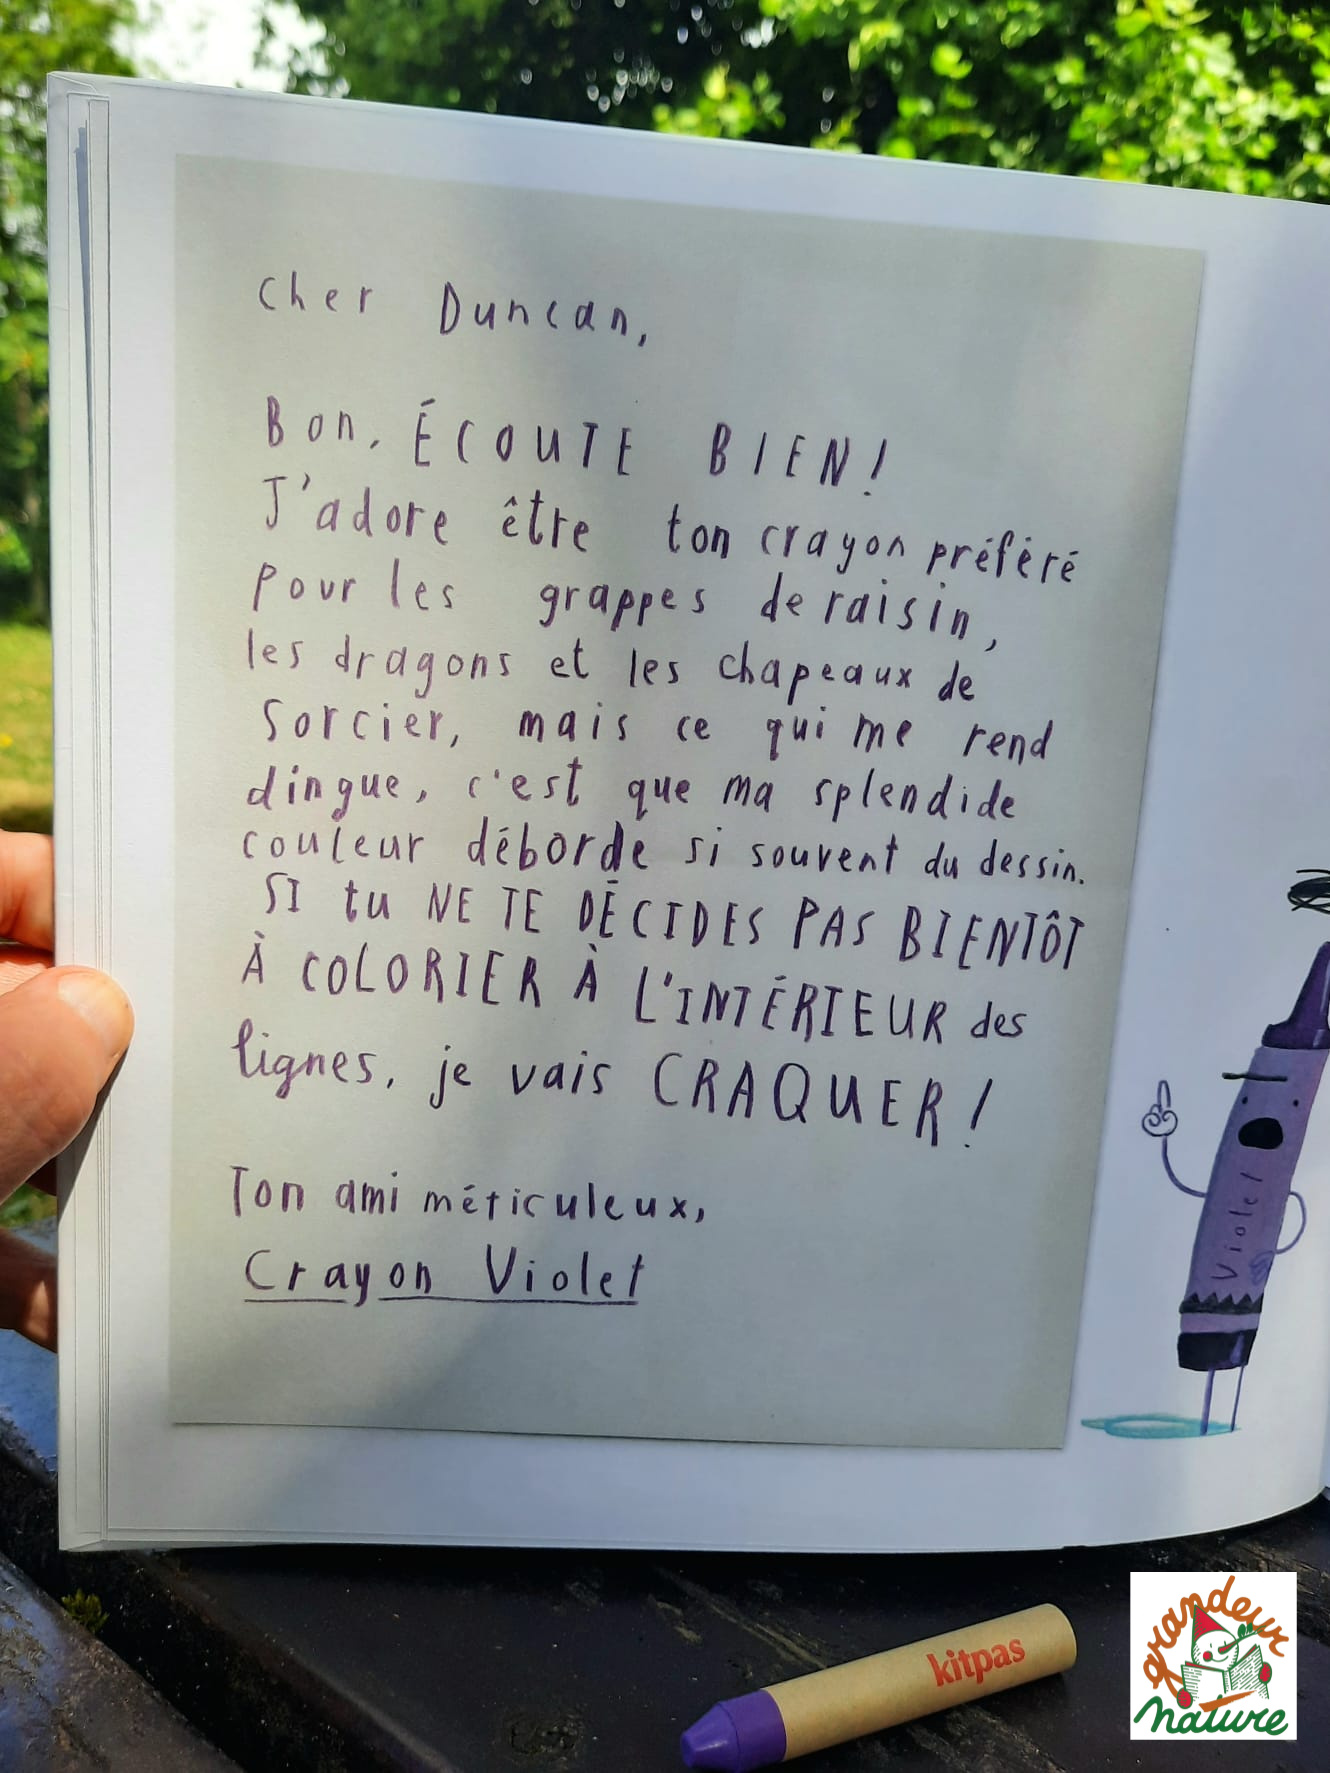 Cher Duncan,
Bon, ÉCOUTE BIEN!
J'adore être ton crayon préféré
pour les grappes de raisin,
les dragons et les chapeaux de
sorcier, mais ce qui me rend
dingue, c'est que ma splendide
couleur déborde si souvent du dessin.
SI tu NE TE DÉCIDES PAS BIENTÔT
À COLORIER À L'INTÉRIEUR des
lignes, je vais CRAQUER!
Ton ami méticuleux,
Crayon Violet
Violet
kitpas
grandeur
nature